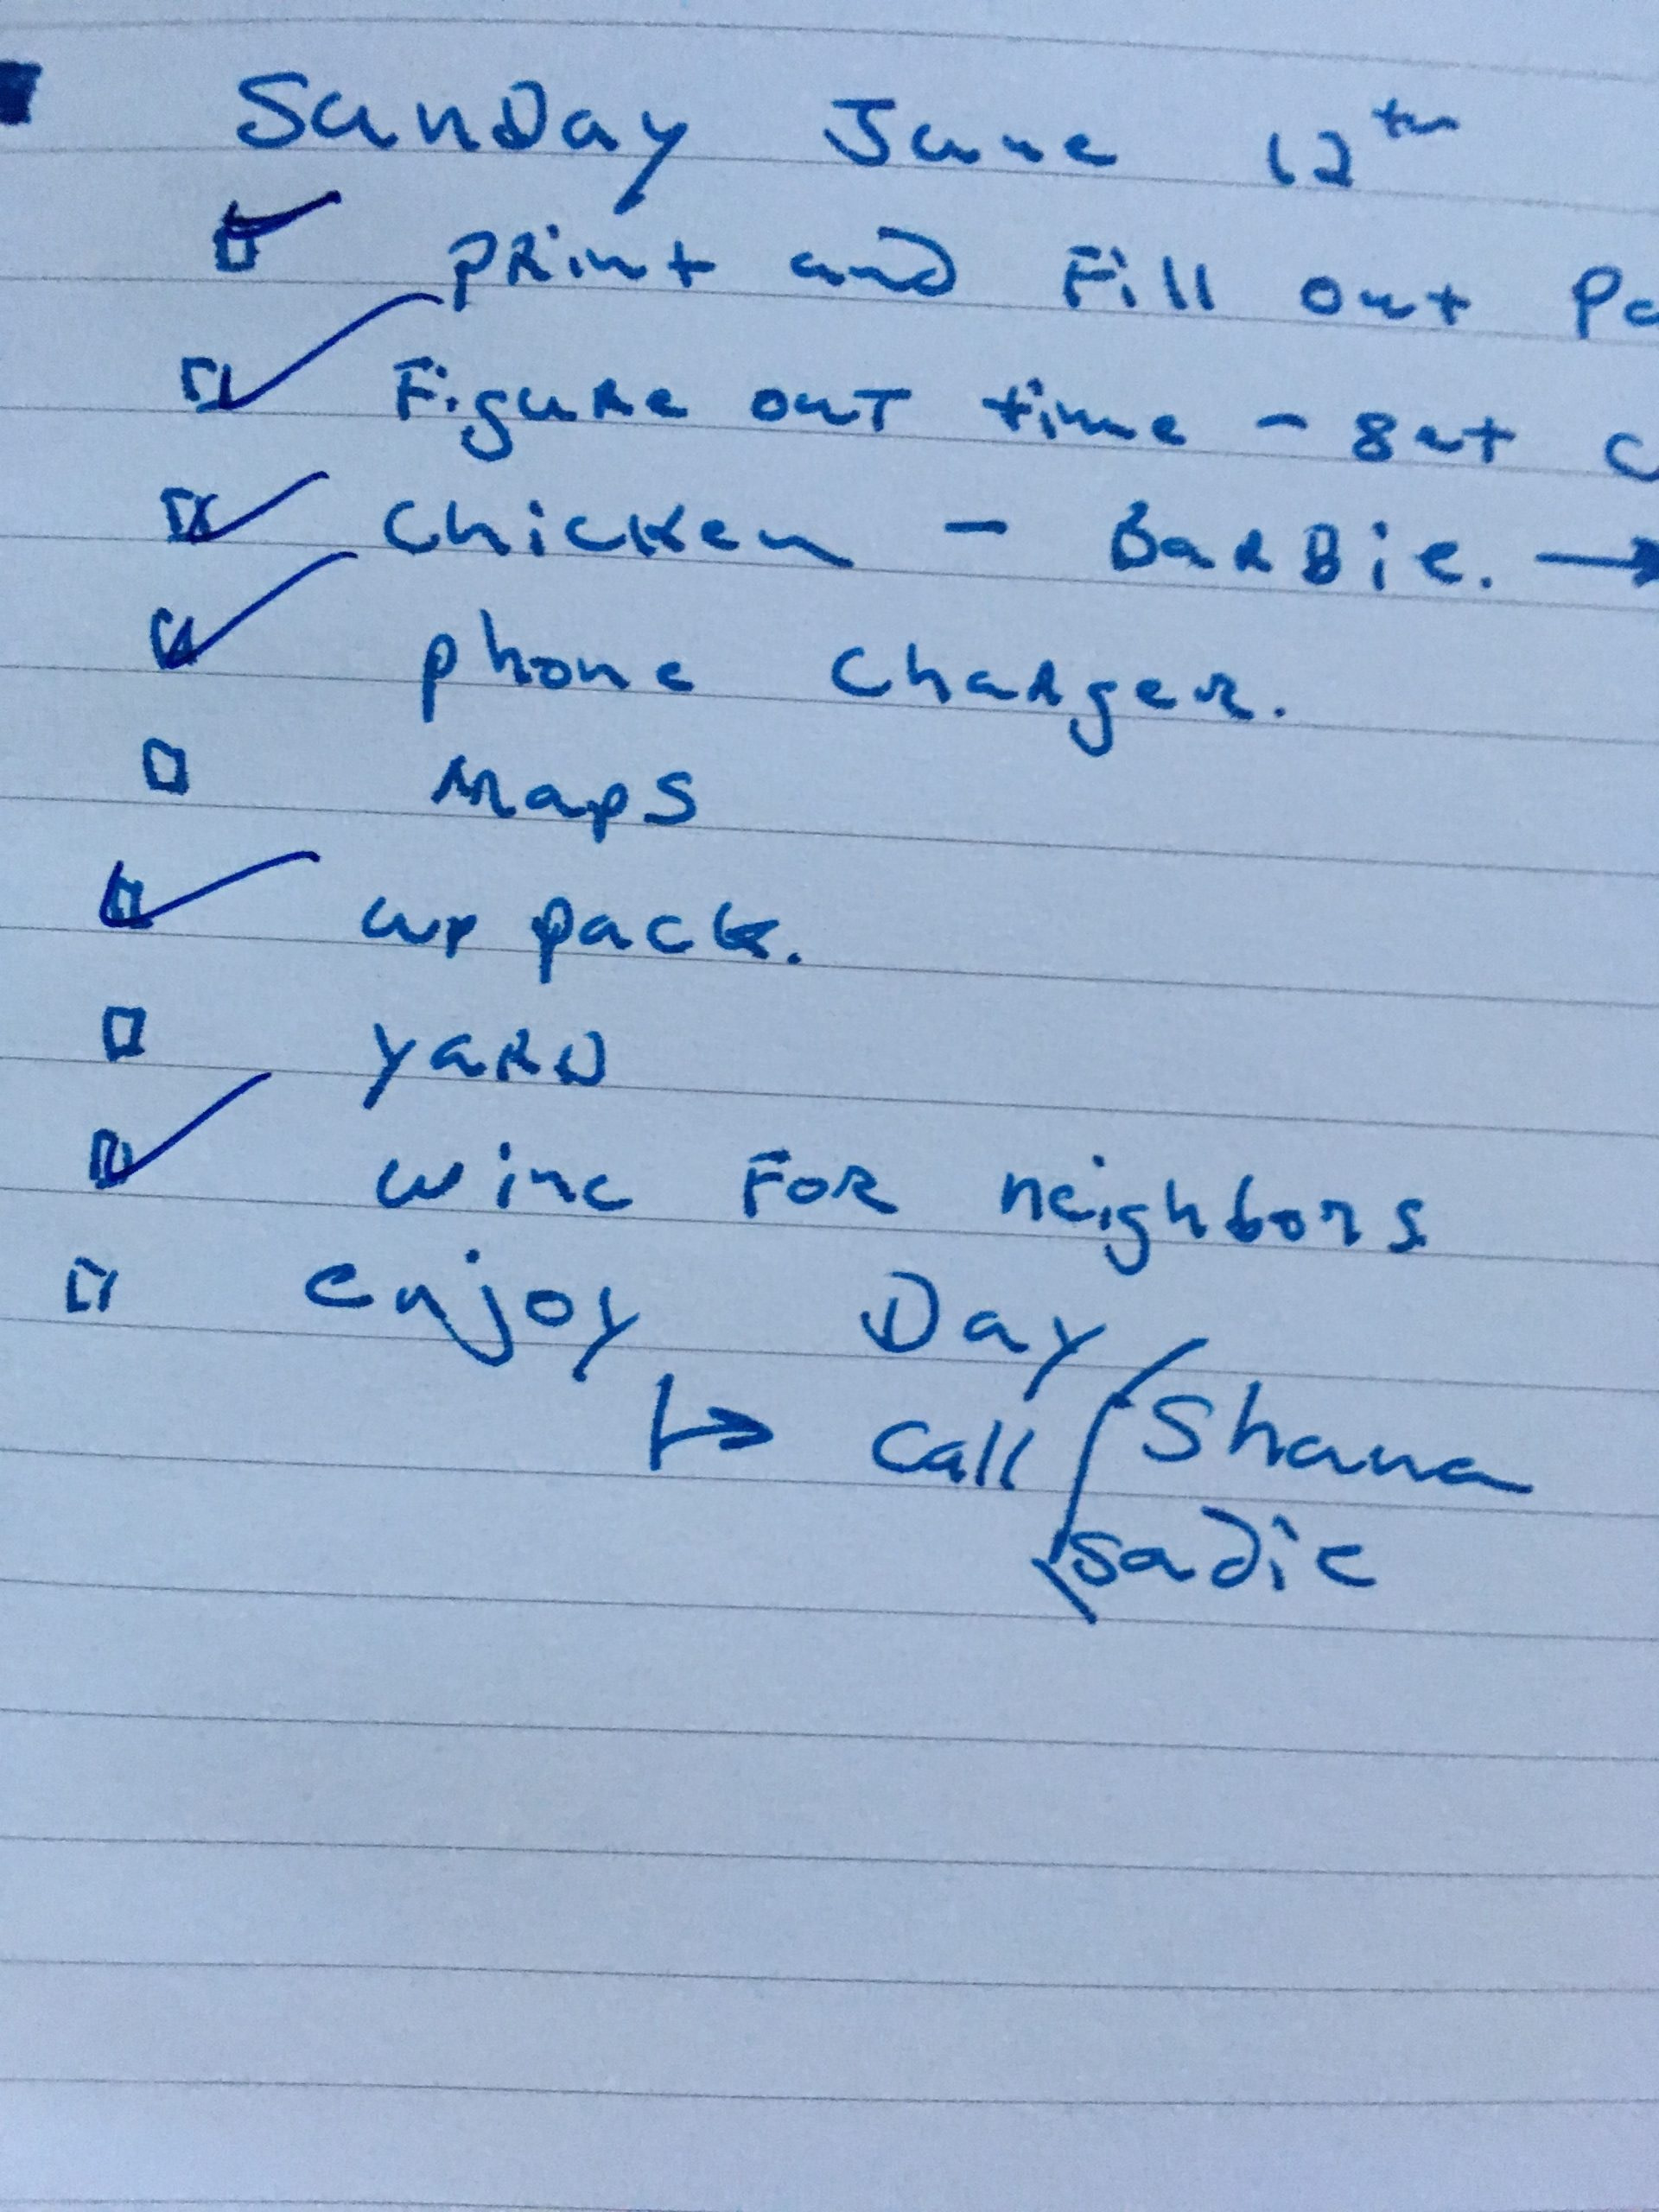 Sunday June 12th
Print and Fill out
Figure out time -
Chicken - BarBie. →
phone Charger.
Maps
pack.
yard
wine For neighbors
enjoy Day
↳ Call Shana
Sadie